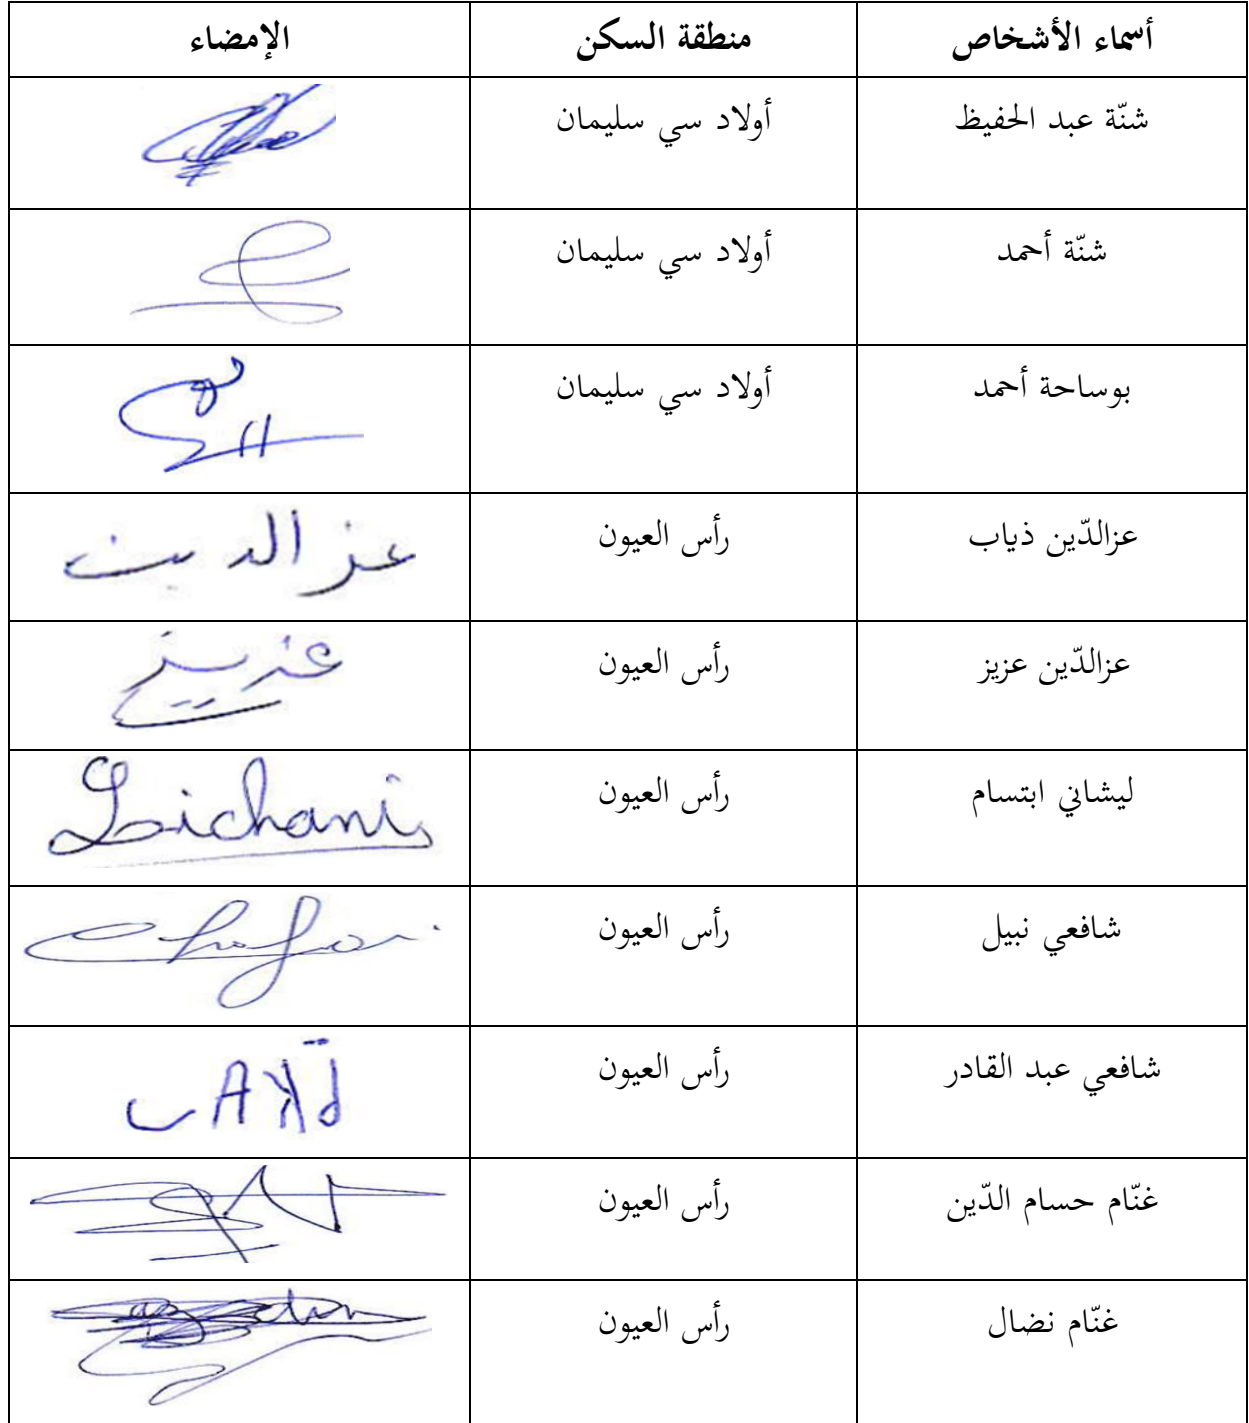 أسماء الأشخاص منطقة السكن الإمضاء
شنّة عبد الحفيظ أولاد سي سليمان
شنّة أحمد أولاد سي سليمان
بوساحة أحمد أولاد سي سليمان
عزالدّين ذياب رأس العيون عز الدين
عزالدّين عزيز رأس العيون عزيز
ليشاني ابتسام رأس العيون Lichani
شافعي نبيل رأس العيون Chafai
شافعي عبد القادر رأس العيون
غنّام حسام الدّين رأس العيون
غنّام نضال رأس العيون